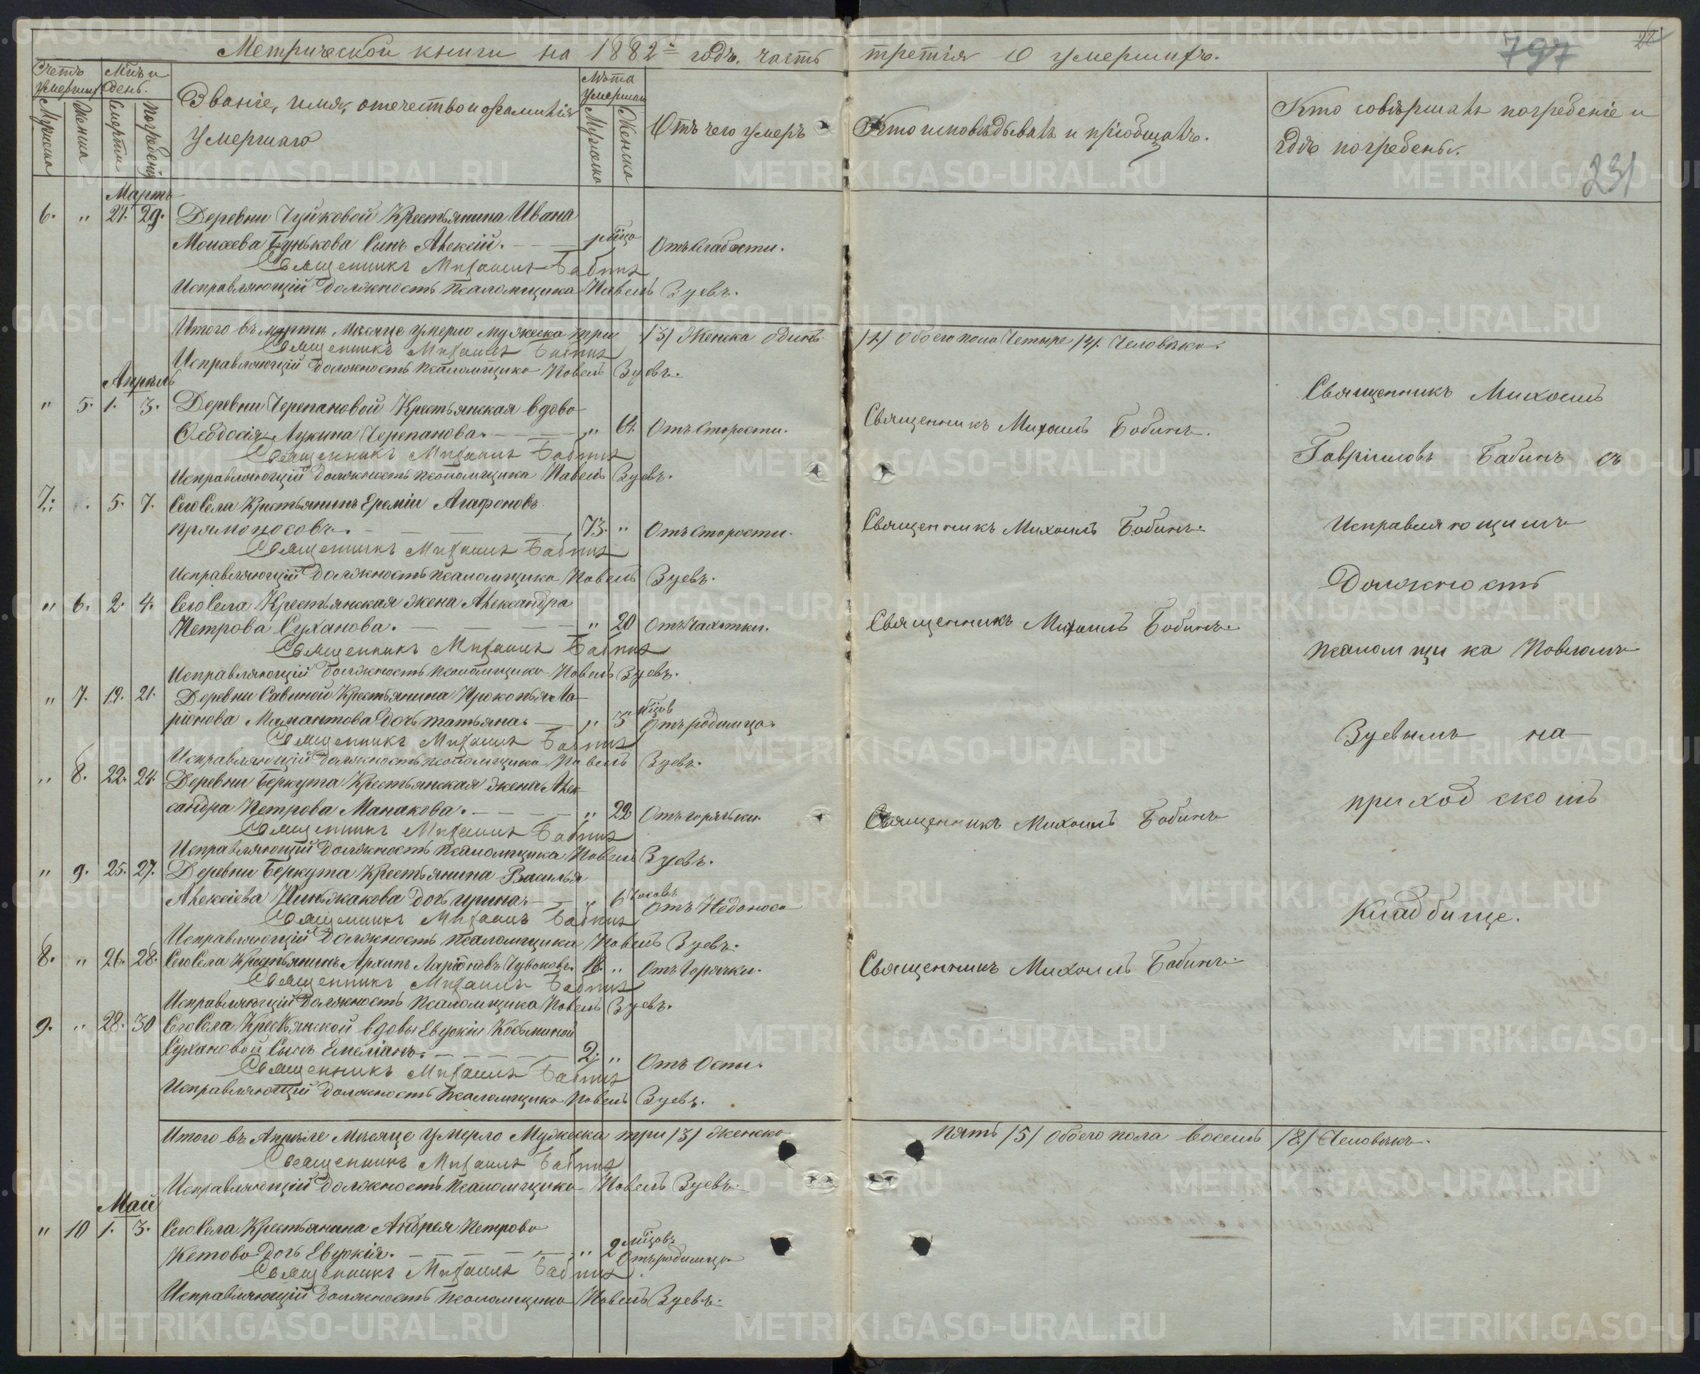 Метрической книги на 1882й годъ, часть третiя о умершихъ.
797
231
Счетъ умершихъ
Мужеска
Женска
Мѣс. и день.
Смерти
Погребенiя
Званiе, имя, отечество и фамилiя
умершаго
Лѣта умершаго
Мужеска
Женска
Отъ чего умеръ
Кто исповѣдывалъ и прiобщалъ.
Кто совѣршалъ погребенiе и
гдѣ погребены.
Мартъ
6. " 27. 29. Деревни Чуйковой Крестьянина Ивана
Моисеева Бунькова Сынъ Алексiй. Отъ Слабости.
Священникъ Михаилъ Бабинъ
Исправляющiй должность псаломщика Павелъ Зуевъ.
Итого въ мартѣ Мѣсяце умерло Мужеска три /3/ Женска одинъ /1/ Обоего пола Четыре /4/. Человѣка.
Священникъ Михаилъ Бабинъ
Исправляющiй должность псаломщика Павелъ Зуевъ.
Апрѣль
" 5. 1. 3. Деревни Черепановой Крестьянская вдова
Ѳеодосiя Лукина Черепанова. " Отъ Старости. Священникъ Михаилъ Бабинъ.
Священникъ Михаилъ Бабинъ
Исправляющiй должность псаломщика Павелъ Зуевъ.
7. " 5. 7. Сего Села Крестьянинъ Еремiй Агафоновъ
Прямоносовъ. 73. " Отъ Старости. Священникъ Михаилъ Бабинъ.
Священникъ Михаилъ Бабинъ
Исправляющiй должность псаломщика Павелъ Зуевъ.
" 6. 2. 4. Сего Села Крестьянская жена Александра
Петрова Суханова. " 20 Отъ Чахотки. Священникъ Михаилъ Бабинъ.
Священникъ Михаилъ Бабинъ
Исправляющiй должность псаломщика Павелъ Зуевъ.
" 7. 19. 21. Деревни Савиной Крестьянина Прокопья Ла-
рiонова Мамантова Дочь татьяна. " 5 мѣсцов Отъ родимца.
Священникъ Михаилъ Бабинъ
Исправляющiй должность псаломщика Павелъ Зуевъ.
" 8. 22. 24. Деревни Беркута Крестьянская жена Алек
сандра Петрова Манакова. " 22 Отъ горячки. Священникъ Михаилъ Бабинъ
Священникъ Михаилъ Бабинъ
Исправляющiй должность псаломщика Павелъ Зуевъ.
" 9. 25. 27. Деревни Беркута Крестьянина Василья
Алексѣева Пинжакова Дочь ирина. " 6 часовъ Отъ Недоноса
Священникъ Михаилъ Бабинъ
Исправляющiй должность псаломщика Павелъ Зуевъ.
8. " 26. 28. Сего Села Крестьянинъ Архипъ Ларiоновъ " Отъ Горячки. Священникъ Михаилъ Бабинъ
Священникъ Михаилъ Бабинъ
Исправляющiй должность псаломщика Павелъ Зуевъ.
9. " 28. 30 Сего Села Крестьянской вдовы Евдокiи Козьминой
Сухановой Сынъ Емелiанъ. 2. " Отъ Оспы.
Священникъ Михаилъ Бабинъ
Исправляющiй должность псаломщика Павелъ Зуевъ.
Итого въ Апрѣле Мѣсяце умерло Мужеска три /3/ женска пять /5/ Обоего пола восемь /8/ Человѣкъ.
Священникъ Михаилъ Бабинъ
Исправляющiй должность псаломщика Павелъ Зуевъ.
Май
" 10 1. 3. Сего Села Крестьянина Андрея Петрова
Кетова Дочь Евдокiя. " 2 мѣсцовъ Отъ родимца
Священникъ Михаилъ Бабинъ
Исправляющiй должность псаломщика Павелъ Зуевъ.
Священникъ Михаилъ
Гаврiиловъ Бабинъ съ
Исправляющимъ
Должность
псаломщика Павломъ
Зуевымъ на
приходскомъ
Кладбище.
METRIKI.GASO-URAL.RU